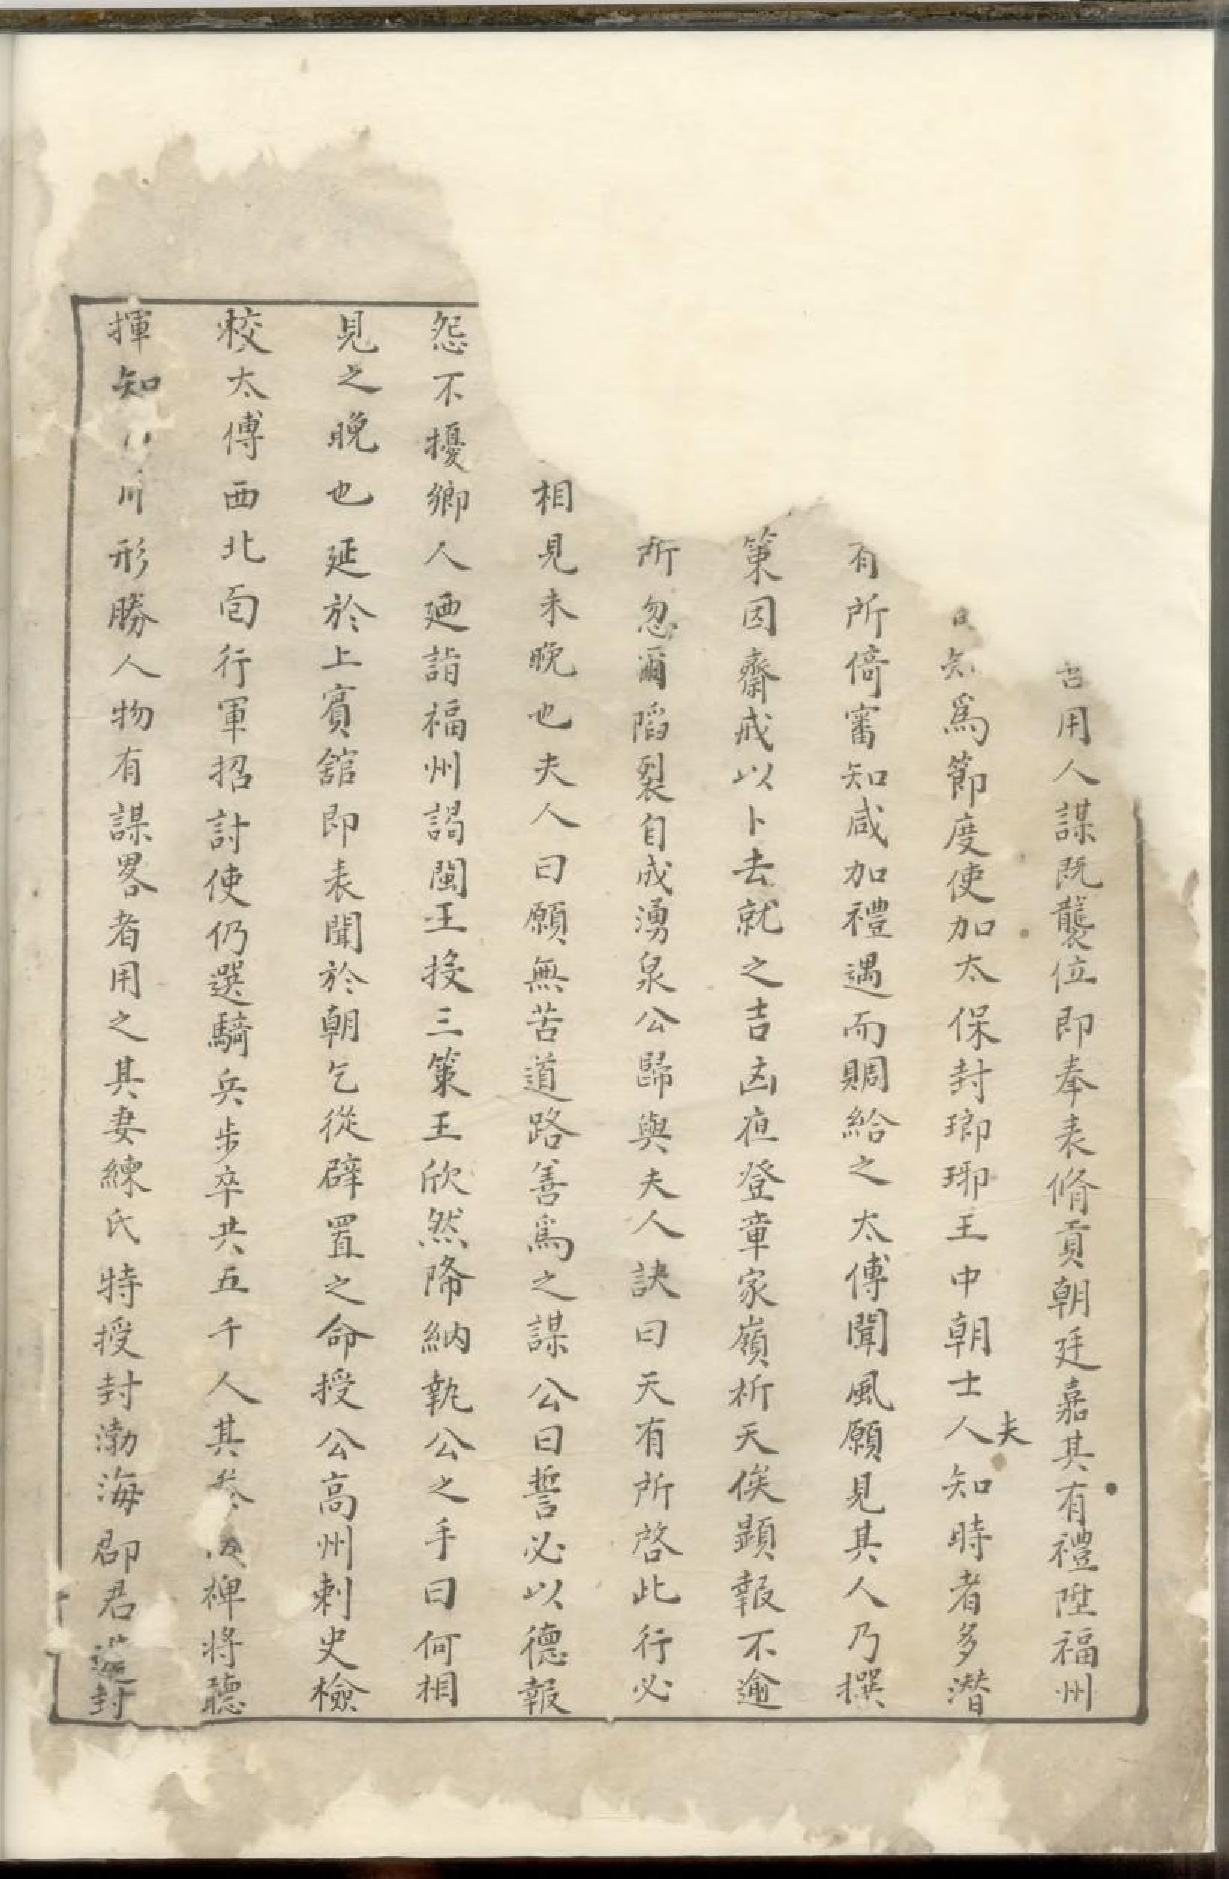 用人謀既襲位即奉表脩貢朝廷嘉其有禮陞福州
知爲節度使加太保封瑯琊王中朝士人夫知時者多潛
有所倚審知咸加禮遇而賙給之太傅聞風願見其人乃撰
策因齋戒以卜去就之吉凶夜登章家嶺析天俟顕報不逾
所忽爾陷裂自成湧泉公歸與夫人訣曰天有所啓此行必
相見未晚也夫人曰願無苦道路善爲之謀公曰誓必以德報
怨不擾鄉人廼詣福州謁閩王授三策王欣然降納執公之手曰何相
見之晚也延於上賓舘即表聞於朝乞從辟置之命授公高州刺史檢
校太傅西北面行軍招討使仍選騎兵步卒共五千人其叅裨將聽
揮知形勝人物有謀畧者用之其妻練氏特授封渤海郡君進封